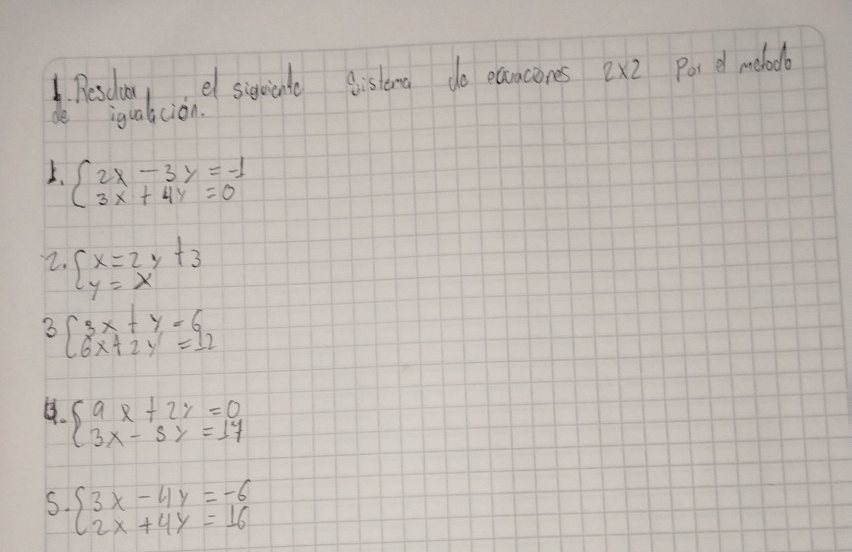 1. Resolver el siguiente sistema de ecuaciones 2x2 Por el metodo
de igualación.
1. { 2x - 3y = -1
3x + 4y = 0
2. { x = 2y + 3
y = x
3 { 3x + y = 6
6x + 2y = 12
4. { 9x + 2y = 0
3x - 5y = 17
5. { 3x - 4y = -6
2x + 4y = 16